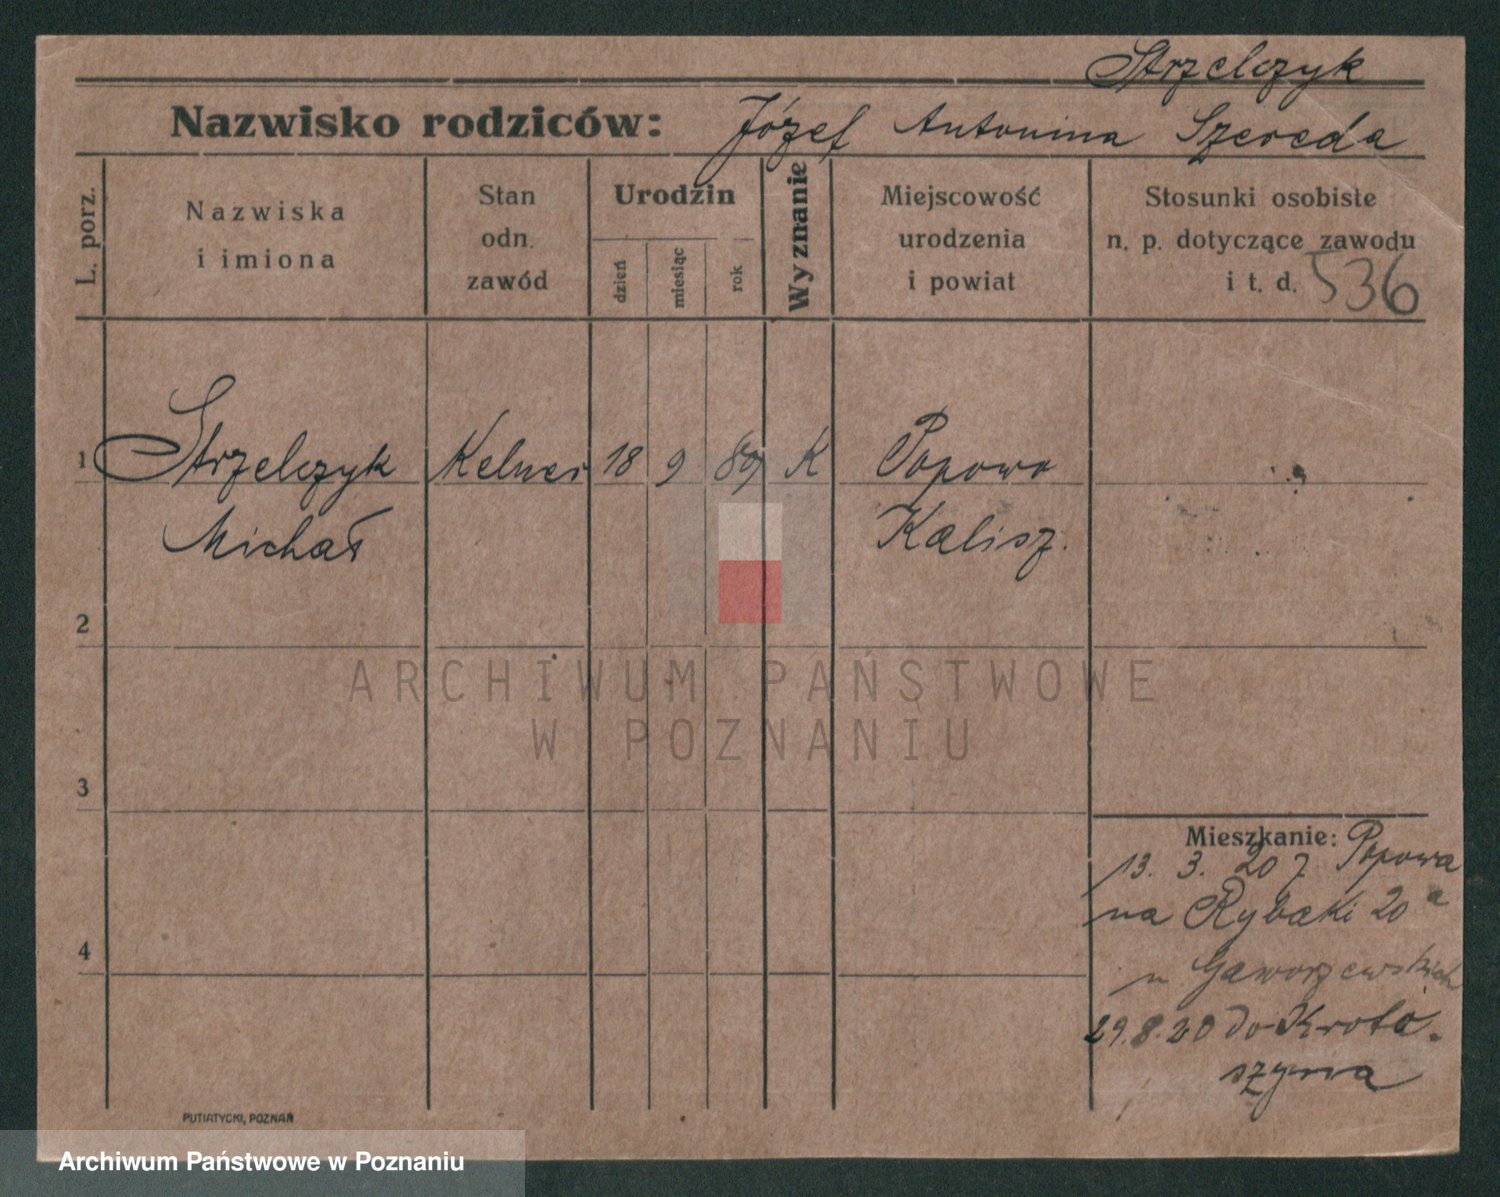 Strzelczyk
Nazwisko rodziców: Józef Antonina Szereda
L. porz.
Nazwiska
i imiona
Stan
odn.
zawód
Urodzin
dzień
miesiąc
rok
Wyznanie
Miejscowość
urodzenia
i powiat
Stosunki osobiste
n. p. dotyczące zawodu
i t. d. 536
1 Strzelczyk Kelner 18 9 89 K Popowo
Michał Kalisz.
2
ARCHIWUM PAŃSTWOWE
W POZNANIU
3
Mieszkanie:
13. 3. 20 z Popowa
na Rybaki 20 a
4
u Gaworzewskich
29.8.20 do Kroto-
szyna
PUTIATYCKI, POZNAŃ
Archiwum Państwowe w Poznaniu